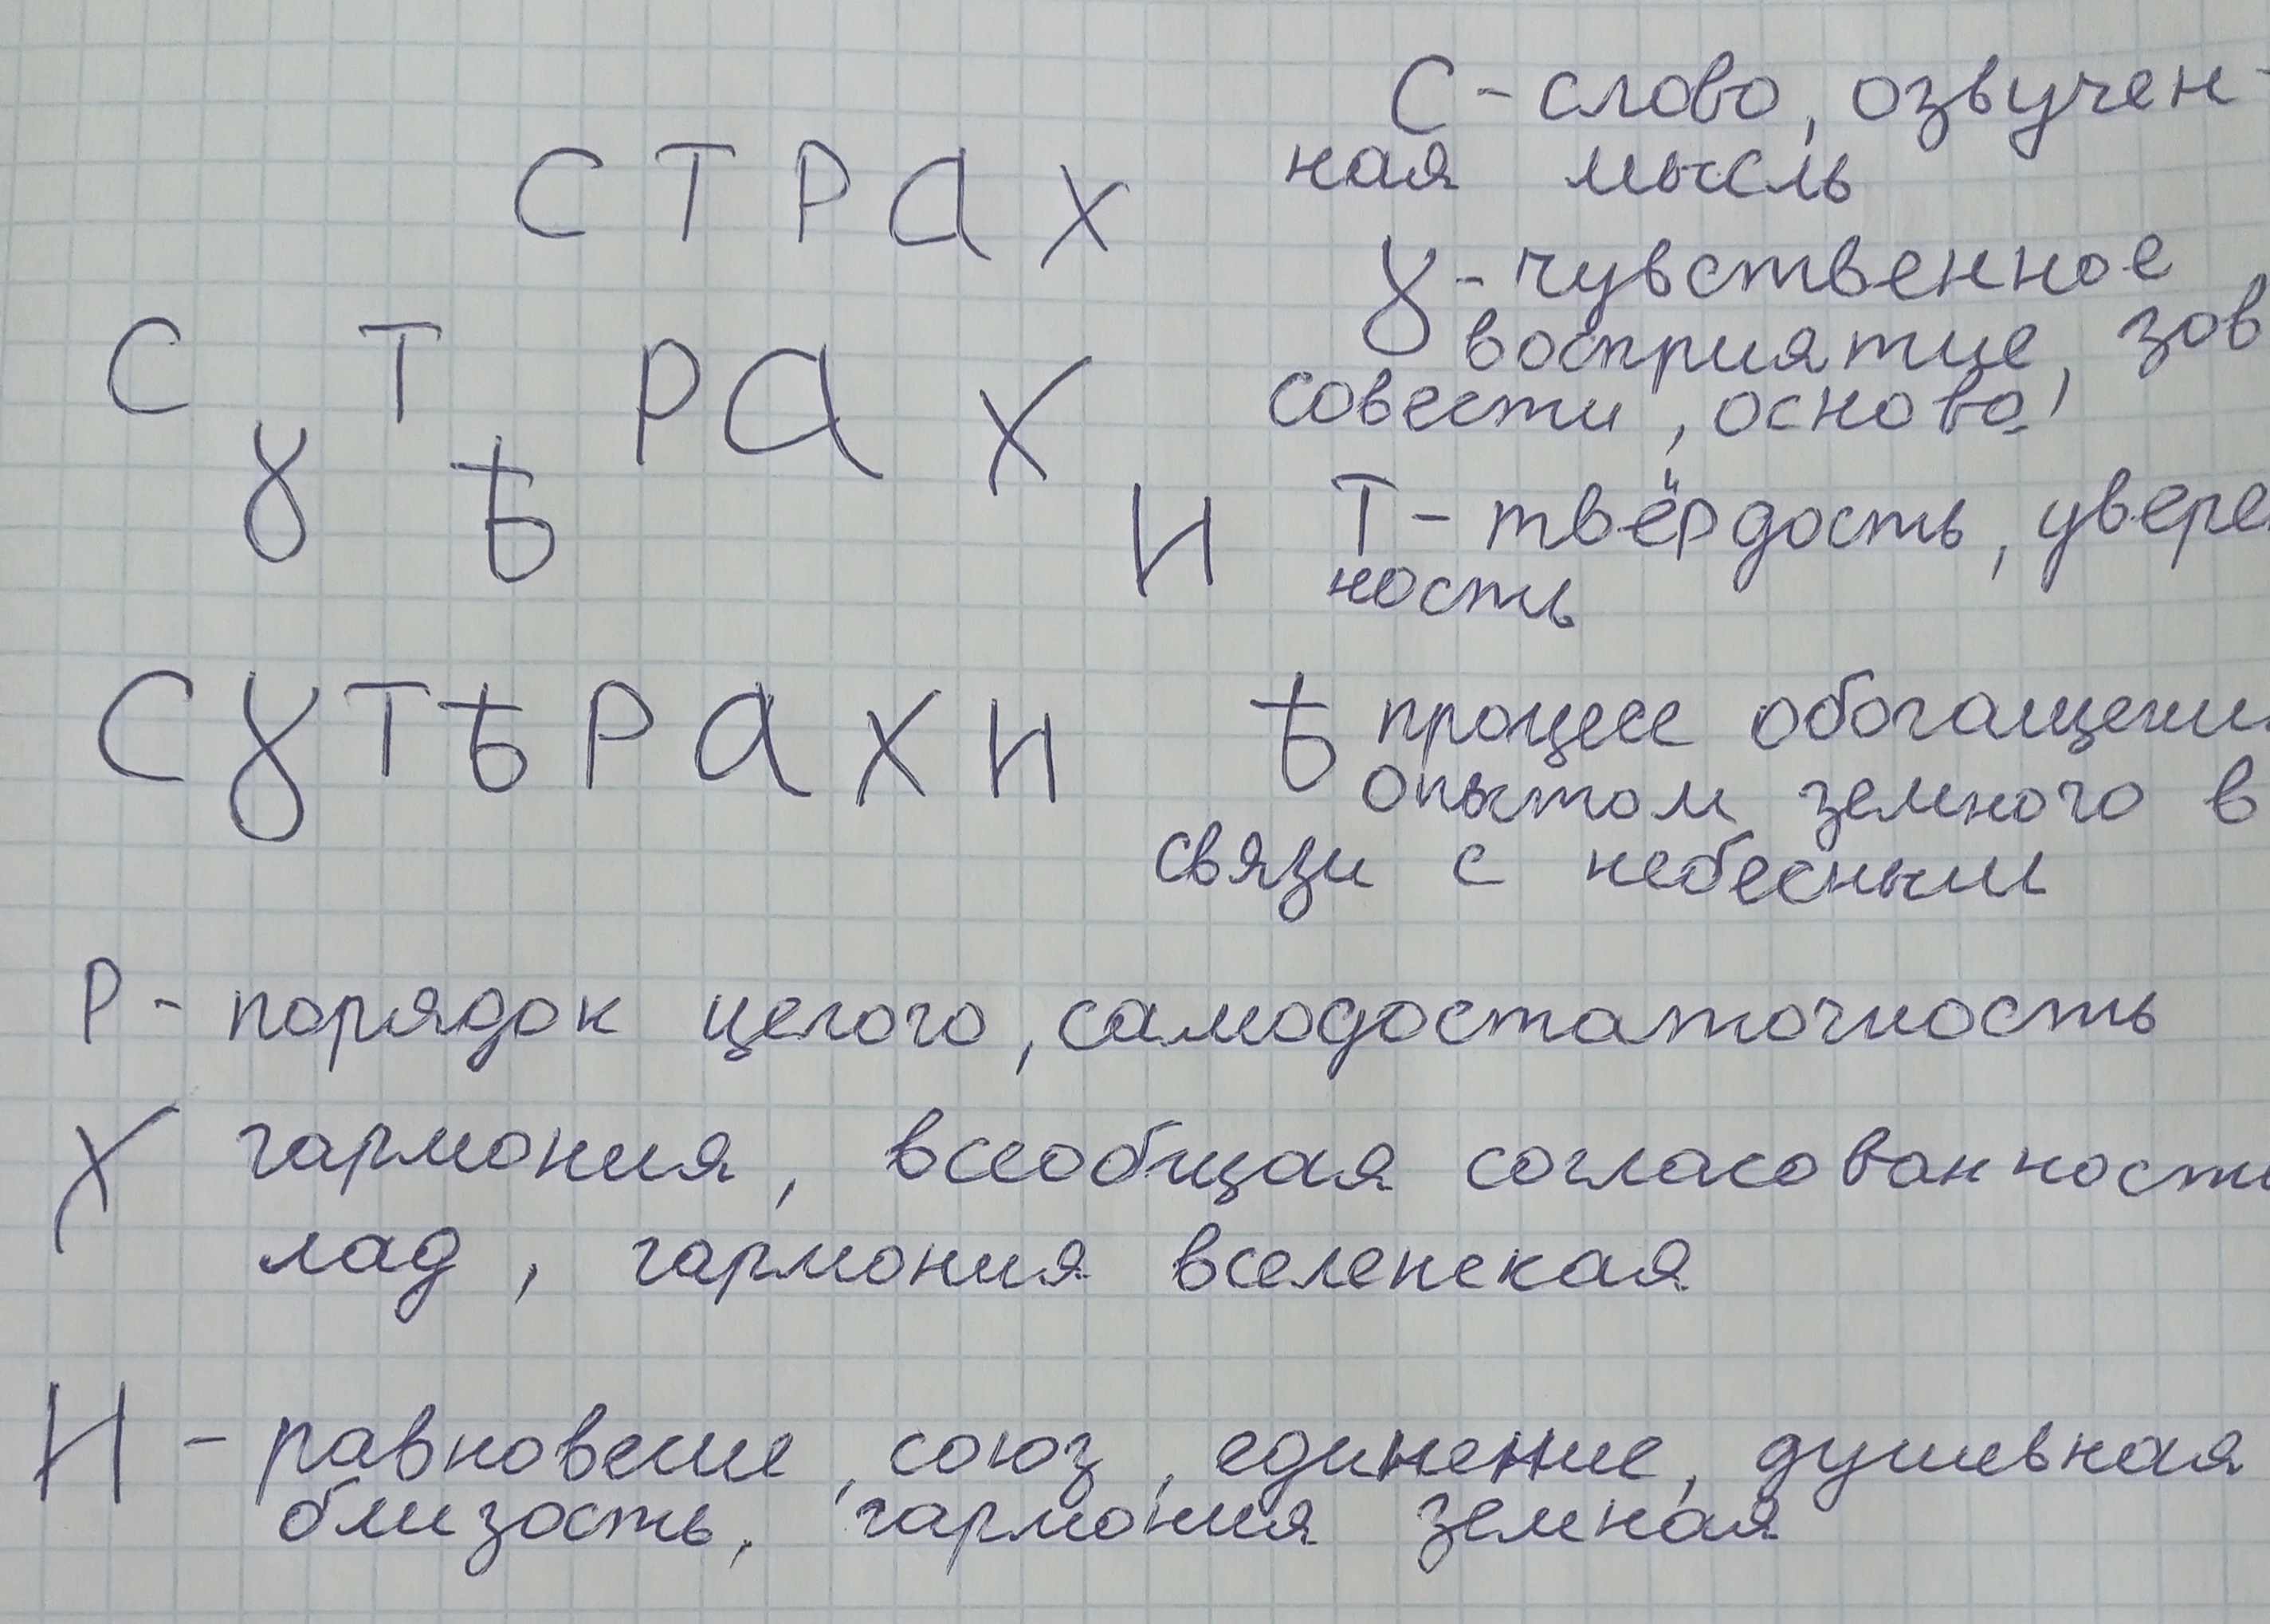 С Т Р А Х
С Ɣ Т Ѣ Р А Х Н
С Ɣ Т Ѣ Р А Х Н
С - слово, озвучен-
ная мысль
Ɣ - чувственное
восприятие, зов
совести, основа!
Т - твёрдость, увере
ность
Ѣ процесс обогащени
опытом земного в
связи с небесным
Р - порядок целого, самодостаточность
Х гармония, всеобщая согласованность
лад, гармония вселенская
Н - равновесие, союз, единение, душевная
близость, гармония земная